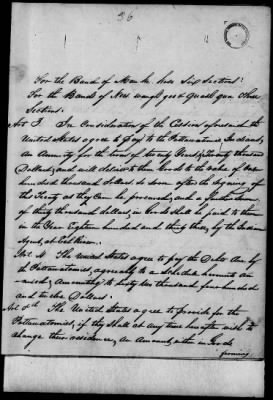 36
For the Band of Monk-
For the Bands of
Sections.
Art 3. In Consideration of the Cession aforesaid the
United States agree to pay to the Pottawatamie Indians,
An Annuity for the term of twenty Years of twenty thousand
Dollars; and will deliver to them Goods to the value of one
hundred thousand dollars so soon after the signing of
the Treaty as they can be procured; and a further sum
of thirty thousand dollars in Goods shall be paid to them
in the Year Eighteen hundred and thirty three, by the Indian
Agent, at Eel River.
Art. 4. The United States agree to pay the Debts due by
the Pottawatamies, agreeably to a Schedule hereunto An-
nexed; Amounting to Sixty two thousand four hundred
and twelve Dollars.
Art 5th The United States agree to provide for the
Pottawatamies, if they shall at any time hereafter wish to
change their residence, An Amount, either in Goods